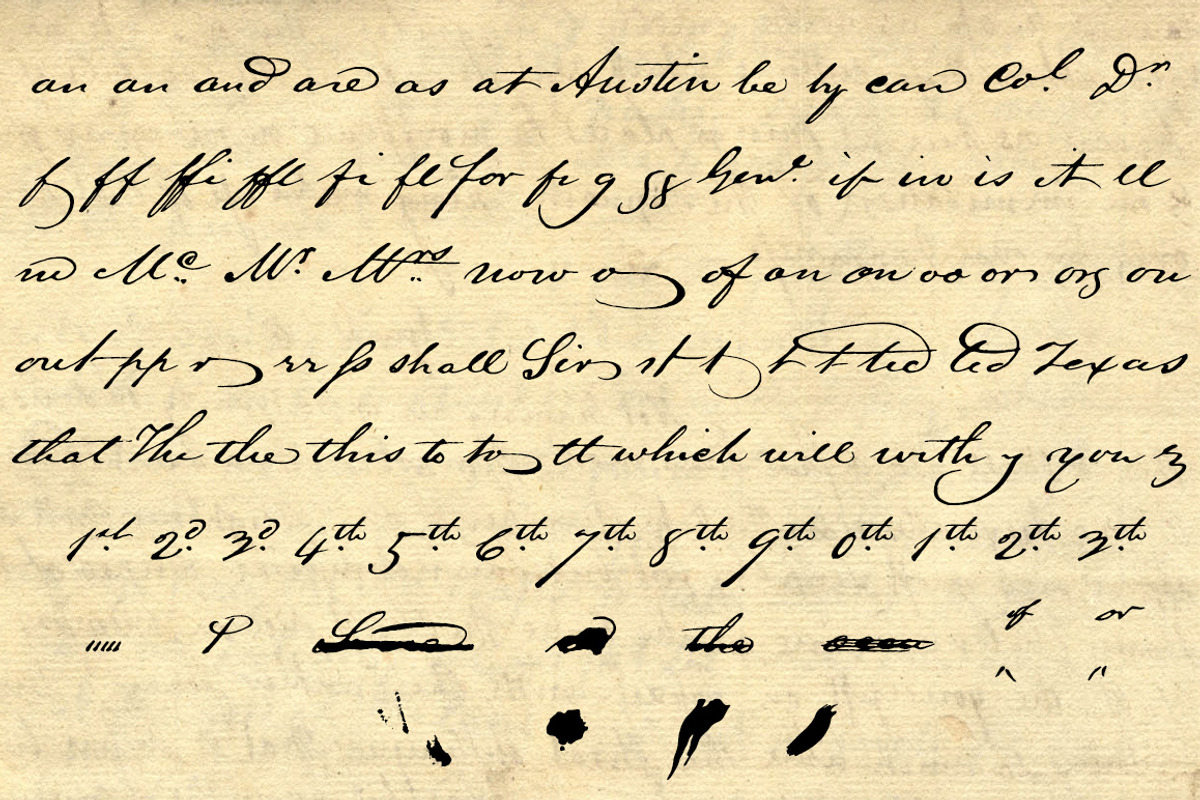 an an and are as at Austin be by can Col. Dr.
f ff ffi ffl fi fl for fr g gg Genl. if in is it ll
m Mc. Mr. Mrs. now o of on on oo or org ou
out pp r rr ss shall Sir st t t t ted ted Texas
that The the this to to tt which will with y you z
1st 2d 3d 4th 5th 6th 7th 8th 9th 0th 1th 2th 3th
""" & the of or